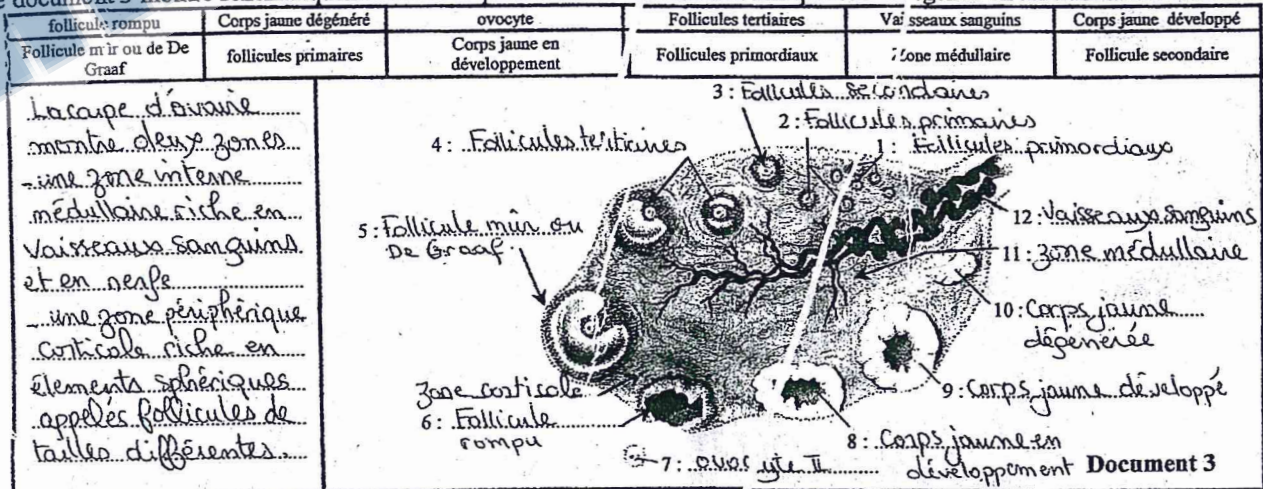 document 3
follicule rompu | Corps jaune dégénéré | ovocyte | Follicules tertiaires | Vaisseaux sanguins | Corps jaune développé
Follicule mûr ou de De Graaf | follicules primaires | Corps jaune en développement | Follicules primordiaux | Zone médullaire | Follicule secondaire
La coupe d'ovaire
montre deux zones
- une zone interne
médullaire riche en
Vaisseaux sanguins
et en nerfs
- une zone périphérique
corticale riche en
élements sphériques
appelés follicules de
tailles différentes.
3: Follicules secondaires
2: Follicules primaires
1: Follicules primordiaux
4: Follicules tertiaires
5: Follicule mûr ou
De Graaf
12: Vaisseaux sanguins
11: zone médullaire
10: Corps jaune
dégénérée
9: Corps jaune développé
Zone corticale
6: Follicule
rompu
8: Corps jaune en
développement
7: ovocyte II
Document 3